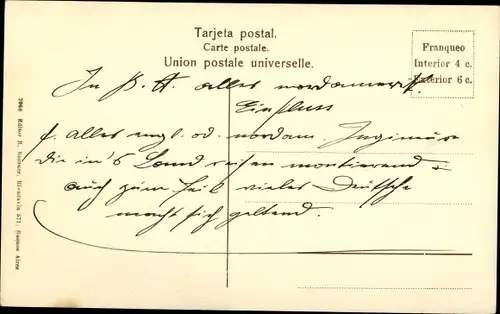 Tarjeta postal.
Carte postale.
Union postale universelle.
Franqueo
Interior 4 c.
Exterior 6 c.
In B. A. alles nordamerik.
Einfluss
f. alles engl. od. nordam. Ingenieure
die in's Land reisen montierend
auch zum Teil vieles Deutsche
macht sich geltend.
Editor R. Rosauer, Rivadavia 571, Buenos Aires